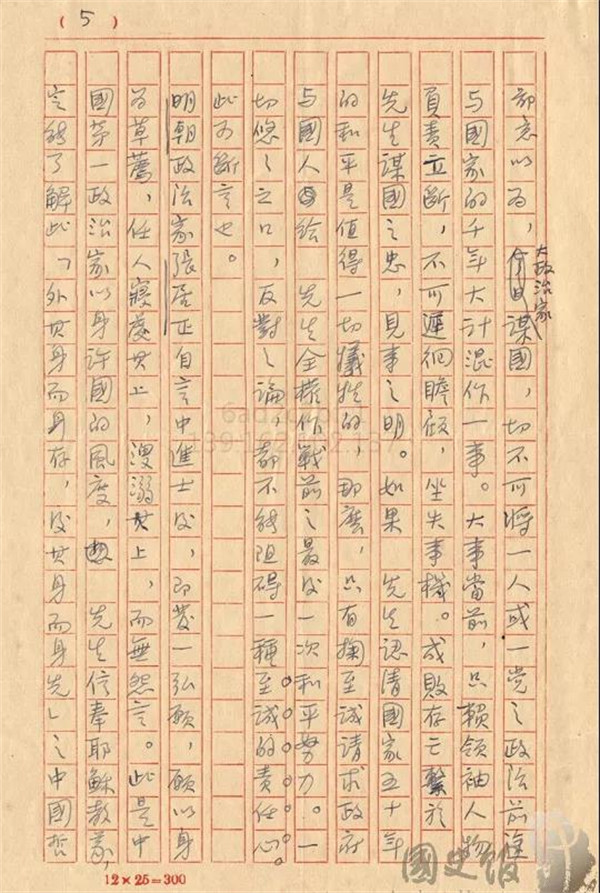 (5)
鄙意以為，大政治家謀國，切不可將一人或一黨之政治前途
與國家的千年大計混作一事。大事當前，只賴領袖人物
負責立斷，不可遲徊瞻顧，坐失事機。成敗存亡繫於
先生謀國之忠，見事之明。如果 先生認清國家五十年
的和平是值得一切犧牲的，那麽，只有掬至誠請求政府
与國人给 先生全權作戰前之最后一次和平努力。一
切悠々之口，反對之論，都不能阻碍一種至誠的責任心。
此可断言也。
明朝政治家張居正自言中進士后，即發一弘願，願以身
為草薦，任人寢處其上，溲溺其上，而無怨言。此是中
國第一政治家以身許國的風度， 先生信奉耶穌教義，
定能了解此「外其身而身存，后其身而身先」之中國哲
12×25=300
國史館